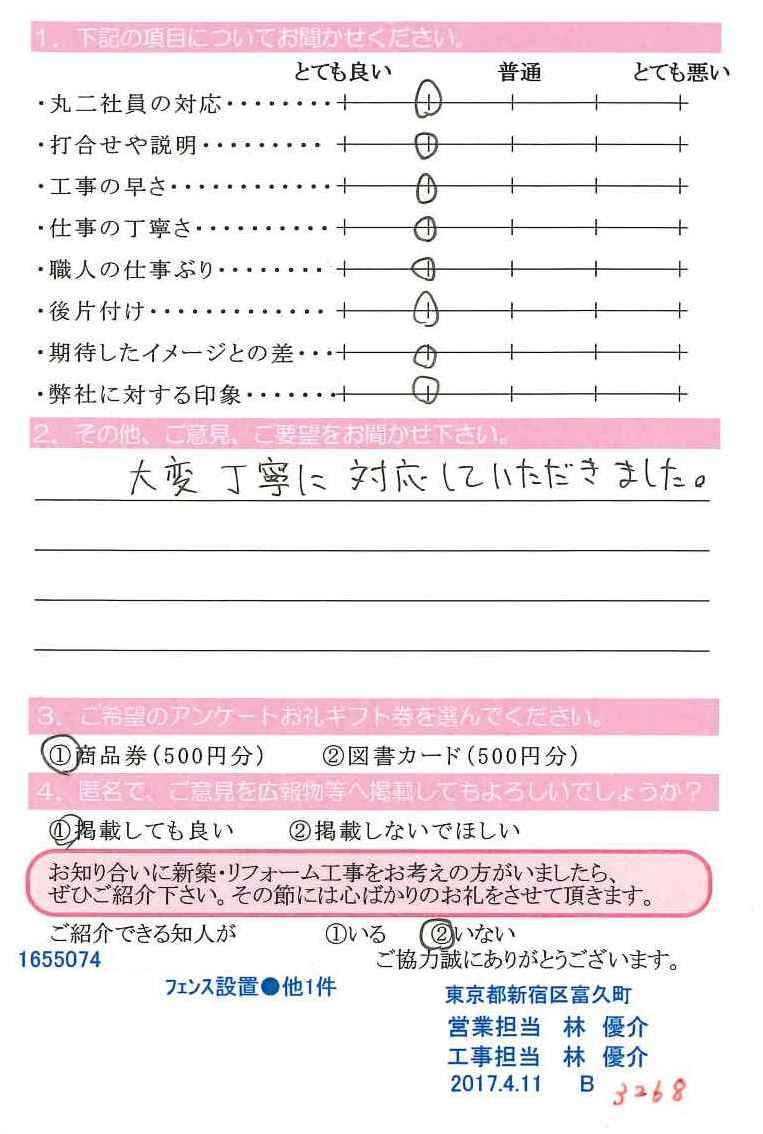 1．下記の項目についてお聞かせください。
とても良い 普通 とても悪い
・丸二社員の対応・・・・・・・
・打合せや説明・・・・・・・・・
・工事の早さ・・・・・・・・・・・・
・仕事の丁寧さ・・・・・・・・・・
・職人の仕事ぶり・・・・・・・・
・後片付け・・・・・・・・・・・・・
・期待したイメージとの差・・・
・弊社に対する印象・・・・・・・
2．その他、ご意見、ご要望をお聞かせ下さい。
大変丁寧に対応していただきました。
3．ご希望のアンケートお礼ギフト券を選んでください。
①商品券（500円分） ②図書カード（500円分）
4．匿名で、ご意見を広報物等へ掲載してもよろしいでしょうか？
①掲載しても良い ②掲載しないでほしい
お知り合いに新築・リフォーム工事をお考えの方がいましたら、
ぜひご紹介下さい。その節には心ばかりのお礼をさせて頂きます。
ご紹介できる知人が ①いる ②いない
1655074 ご協力誠にありがとうございます。
フェンス設置●他1件 東京都新宿区富久町
営業担当 林 優介
工事担当 林 優介
2017.4.11 B 3268